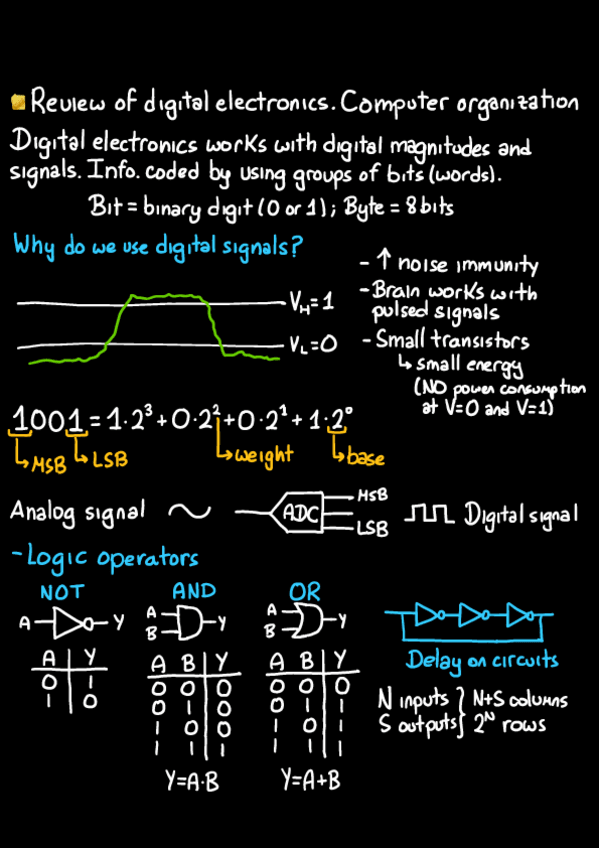 Review of digital electronics. Computer organization
Digital electronics works with digital magnitudes and
signals. Info. coded by using groups of bits (words).
Bit = binary digit (0 or 1); Byte = 8 bits
Why do we use digital signals?
V_H = 1
V_L = 0
- ↑ noise immunity
- Brain works with
pulsed signals
- Small transistors
↳ small energy
(NO power consumption
at V=0 and V=1)
1001 = 1·2³ + 0·2² + 0·2¹ + 1·2⁰
↳ MSB ↳ LSB ↳ weight ↳ base
Analog signal ADC MSB LSB Digital signal
- Logic operators
NOT
A Y
A | Y
0 | 1
1 | 0
AND
A
B
Y
A B | Y
0 0 | 0
0 1 | 0
1 0 | 0
1 1 | 1
Y=A·B
OR
A
B
Y
A B | Y
0 0 | 0
0 1 | 1
1 0 | 1
1 1 | 1
Y=A+B
Delay on circuits
N inputs } N+S columns
S outputs } 2ᴺ rows